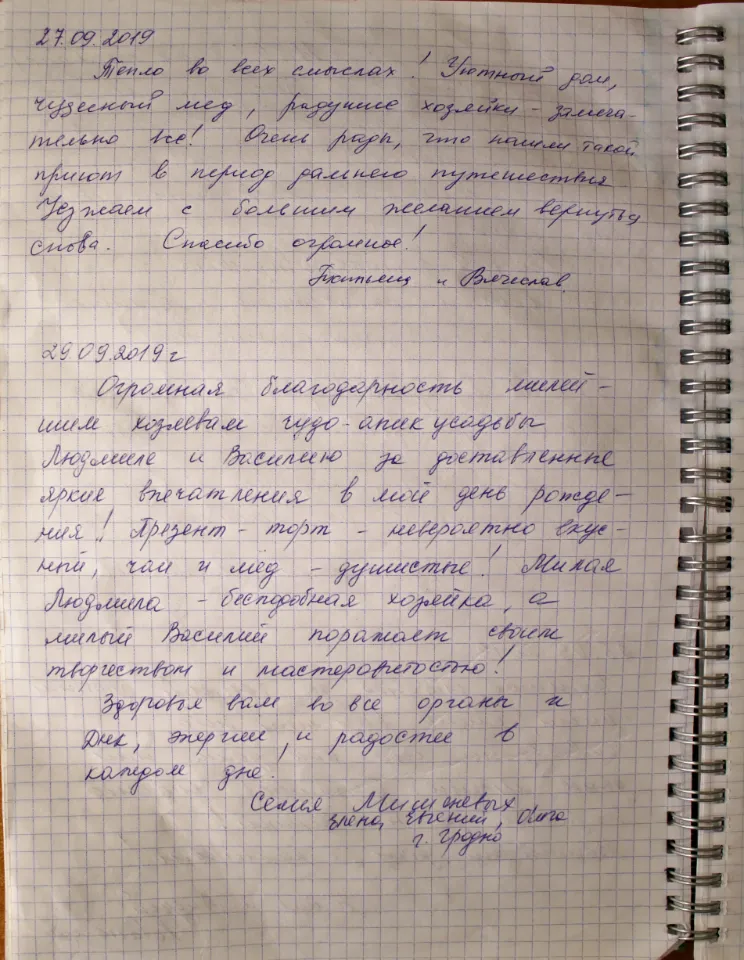 27.09.2019
Тепло во всех смыслах! Уютный дом,
чудесный мед, радушные хозяйки - замеча-
тельно все! Очень рады, что нашли такой
приют в период дальнего путешествия
Уезжаем с большим желанием вернуться
снова. Спасибо огромное!
и Вячеслав.
29.09.2019 г
Огромная благодарность милей-
шим хозяевам чудо-апиусадьбы
Людмиле и Василию за доставленные
яркие впечатления в мой день рожде-
ния! Презент - торт - невероятно вкус-
ный, чаи и мёд - душистые! Милая
Людмила - бесподобная хозяйка, а
милый Василий поражает своим
творчеством и мастеровитостью!
Здоровья вам во все органы и
ДНК, энергии и радостей в
каждом дне!
Семья
Елена, Евгений, Ольга
г. Гродно